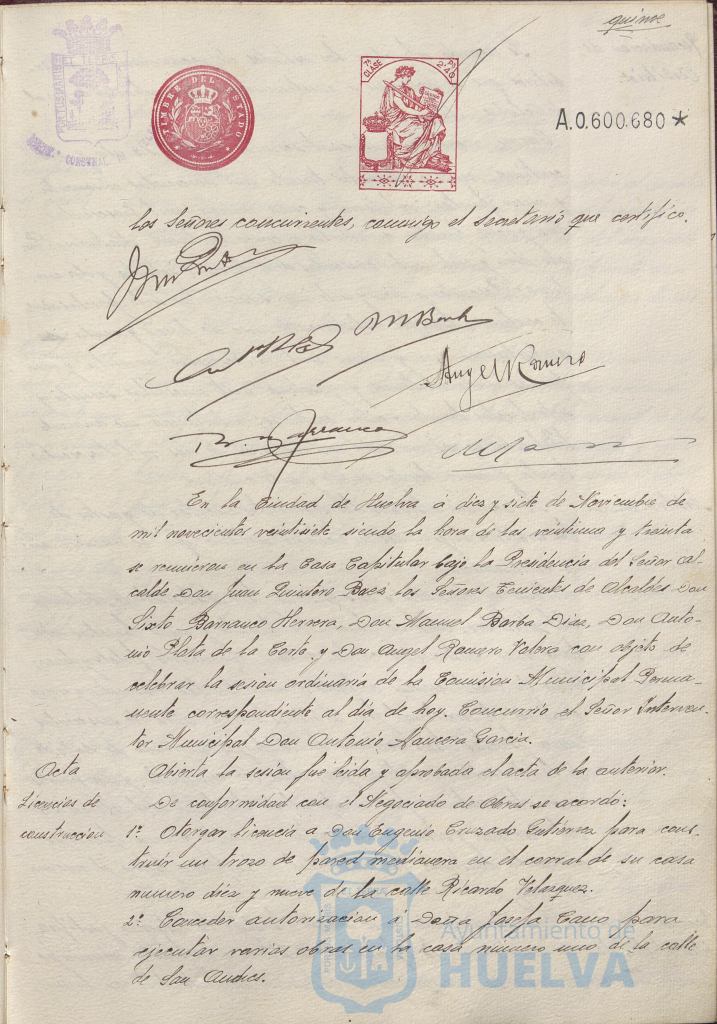 quince
TIMBRE DEL ESTADO
7ª CLASE
2'40
A.0.600.680*
los Señores concurrentes, conmigo el Secretario que certifico.
M Barba
Angel Romero
Barranco
En la Ciudad de Huelva á diez y siete de Noviembre de
mil novecientos veintisiete siendo la hora de las veintiuna y treinta
se reunieron en la Casa Capitular bajo la Presidencia del Señor Al-
calde Don Juan Quintero Baez los Señores Tenientes de Alcaldes Don
Sixto Barranco Herrera, Don Manuel Barba Diaz, Don Anto-
nio Plata de la Corte y Don Angel Romero Valera con objeto de
celebrar la sesion ordinaria de la Comision Municipal Perma-
nente correspondiente al dia de hoy. Concurrio el Señor Interven-
tor Municipal Don Antonio Mancera Garcia.
Acta
Abierta la sesion fué leida y aprobada el acta de la anterior.
Licencias de
construccion
De conformidad con el Negociado de Obras se acordó:
1º. Otorgar licencia a Don Eugenio Cruzado Gutiérrez para cons-
truir un trozo de pared medianera en el corral de su casa
numero diez y nueve de la calle Ricardo Velazquez.
2º. Conceder autorizacion a Doña Josefa Cano para
ejecutar varias obras en la casa numero uno de la calle
de San Andres.
Ayuntamiento de
HUELVA